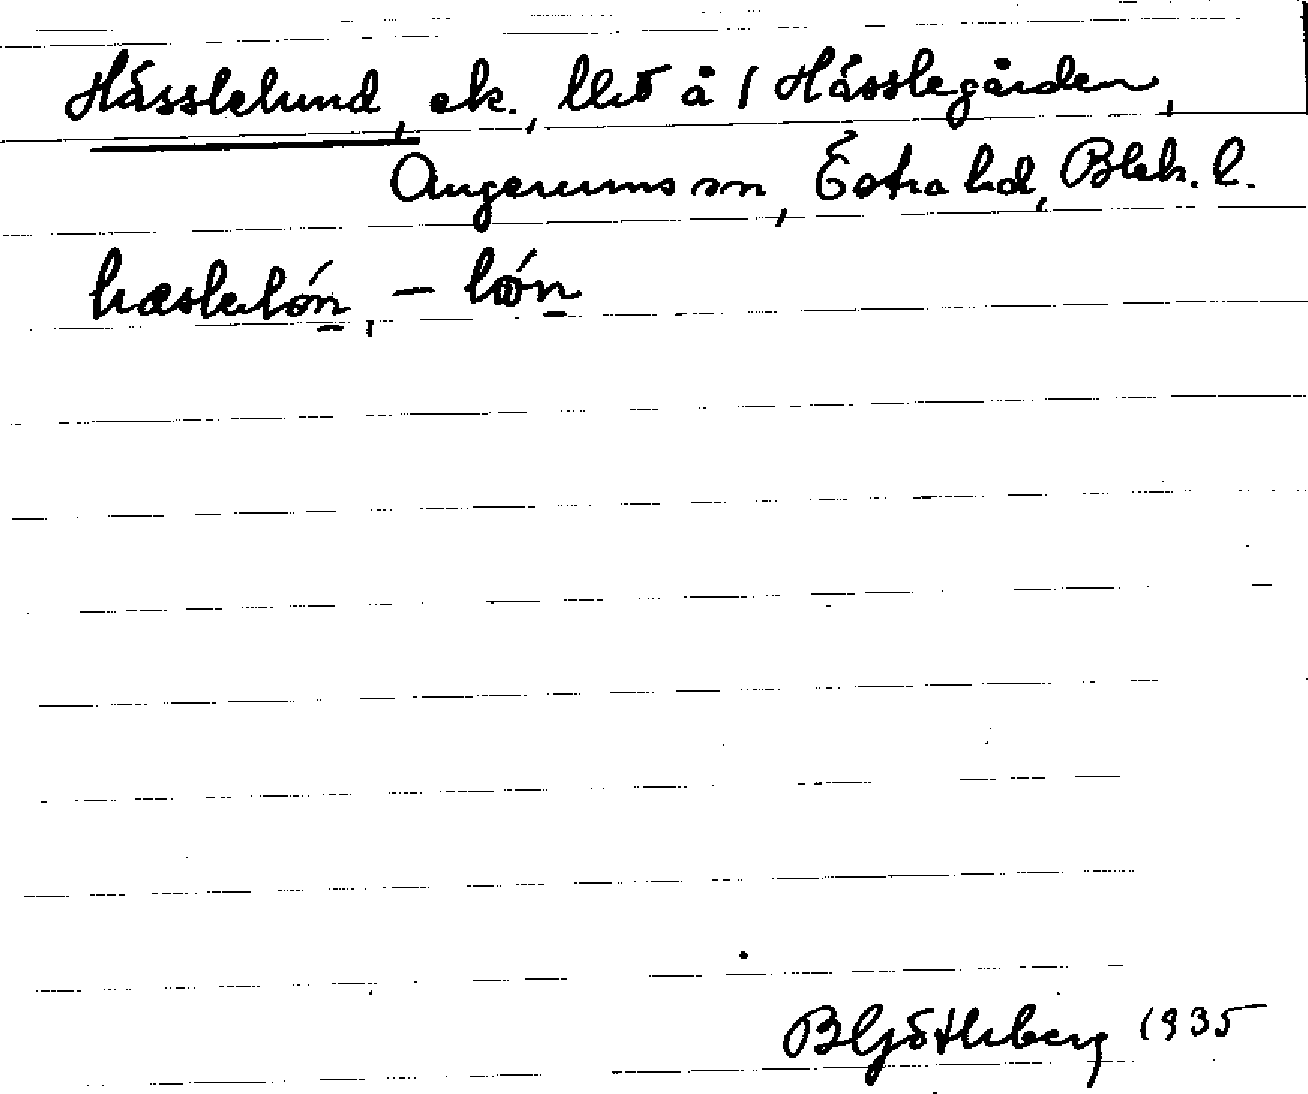 Hässlelund, ek., på 1 Hässlegården,
Augerums sn, Östra hd, Blek. l.
hæslelón, – lón
B Götlberg 1935